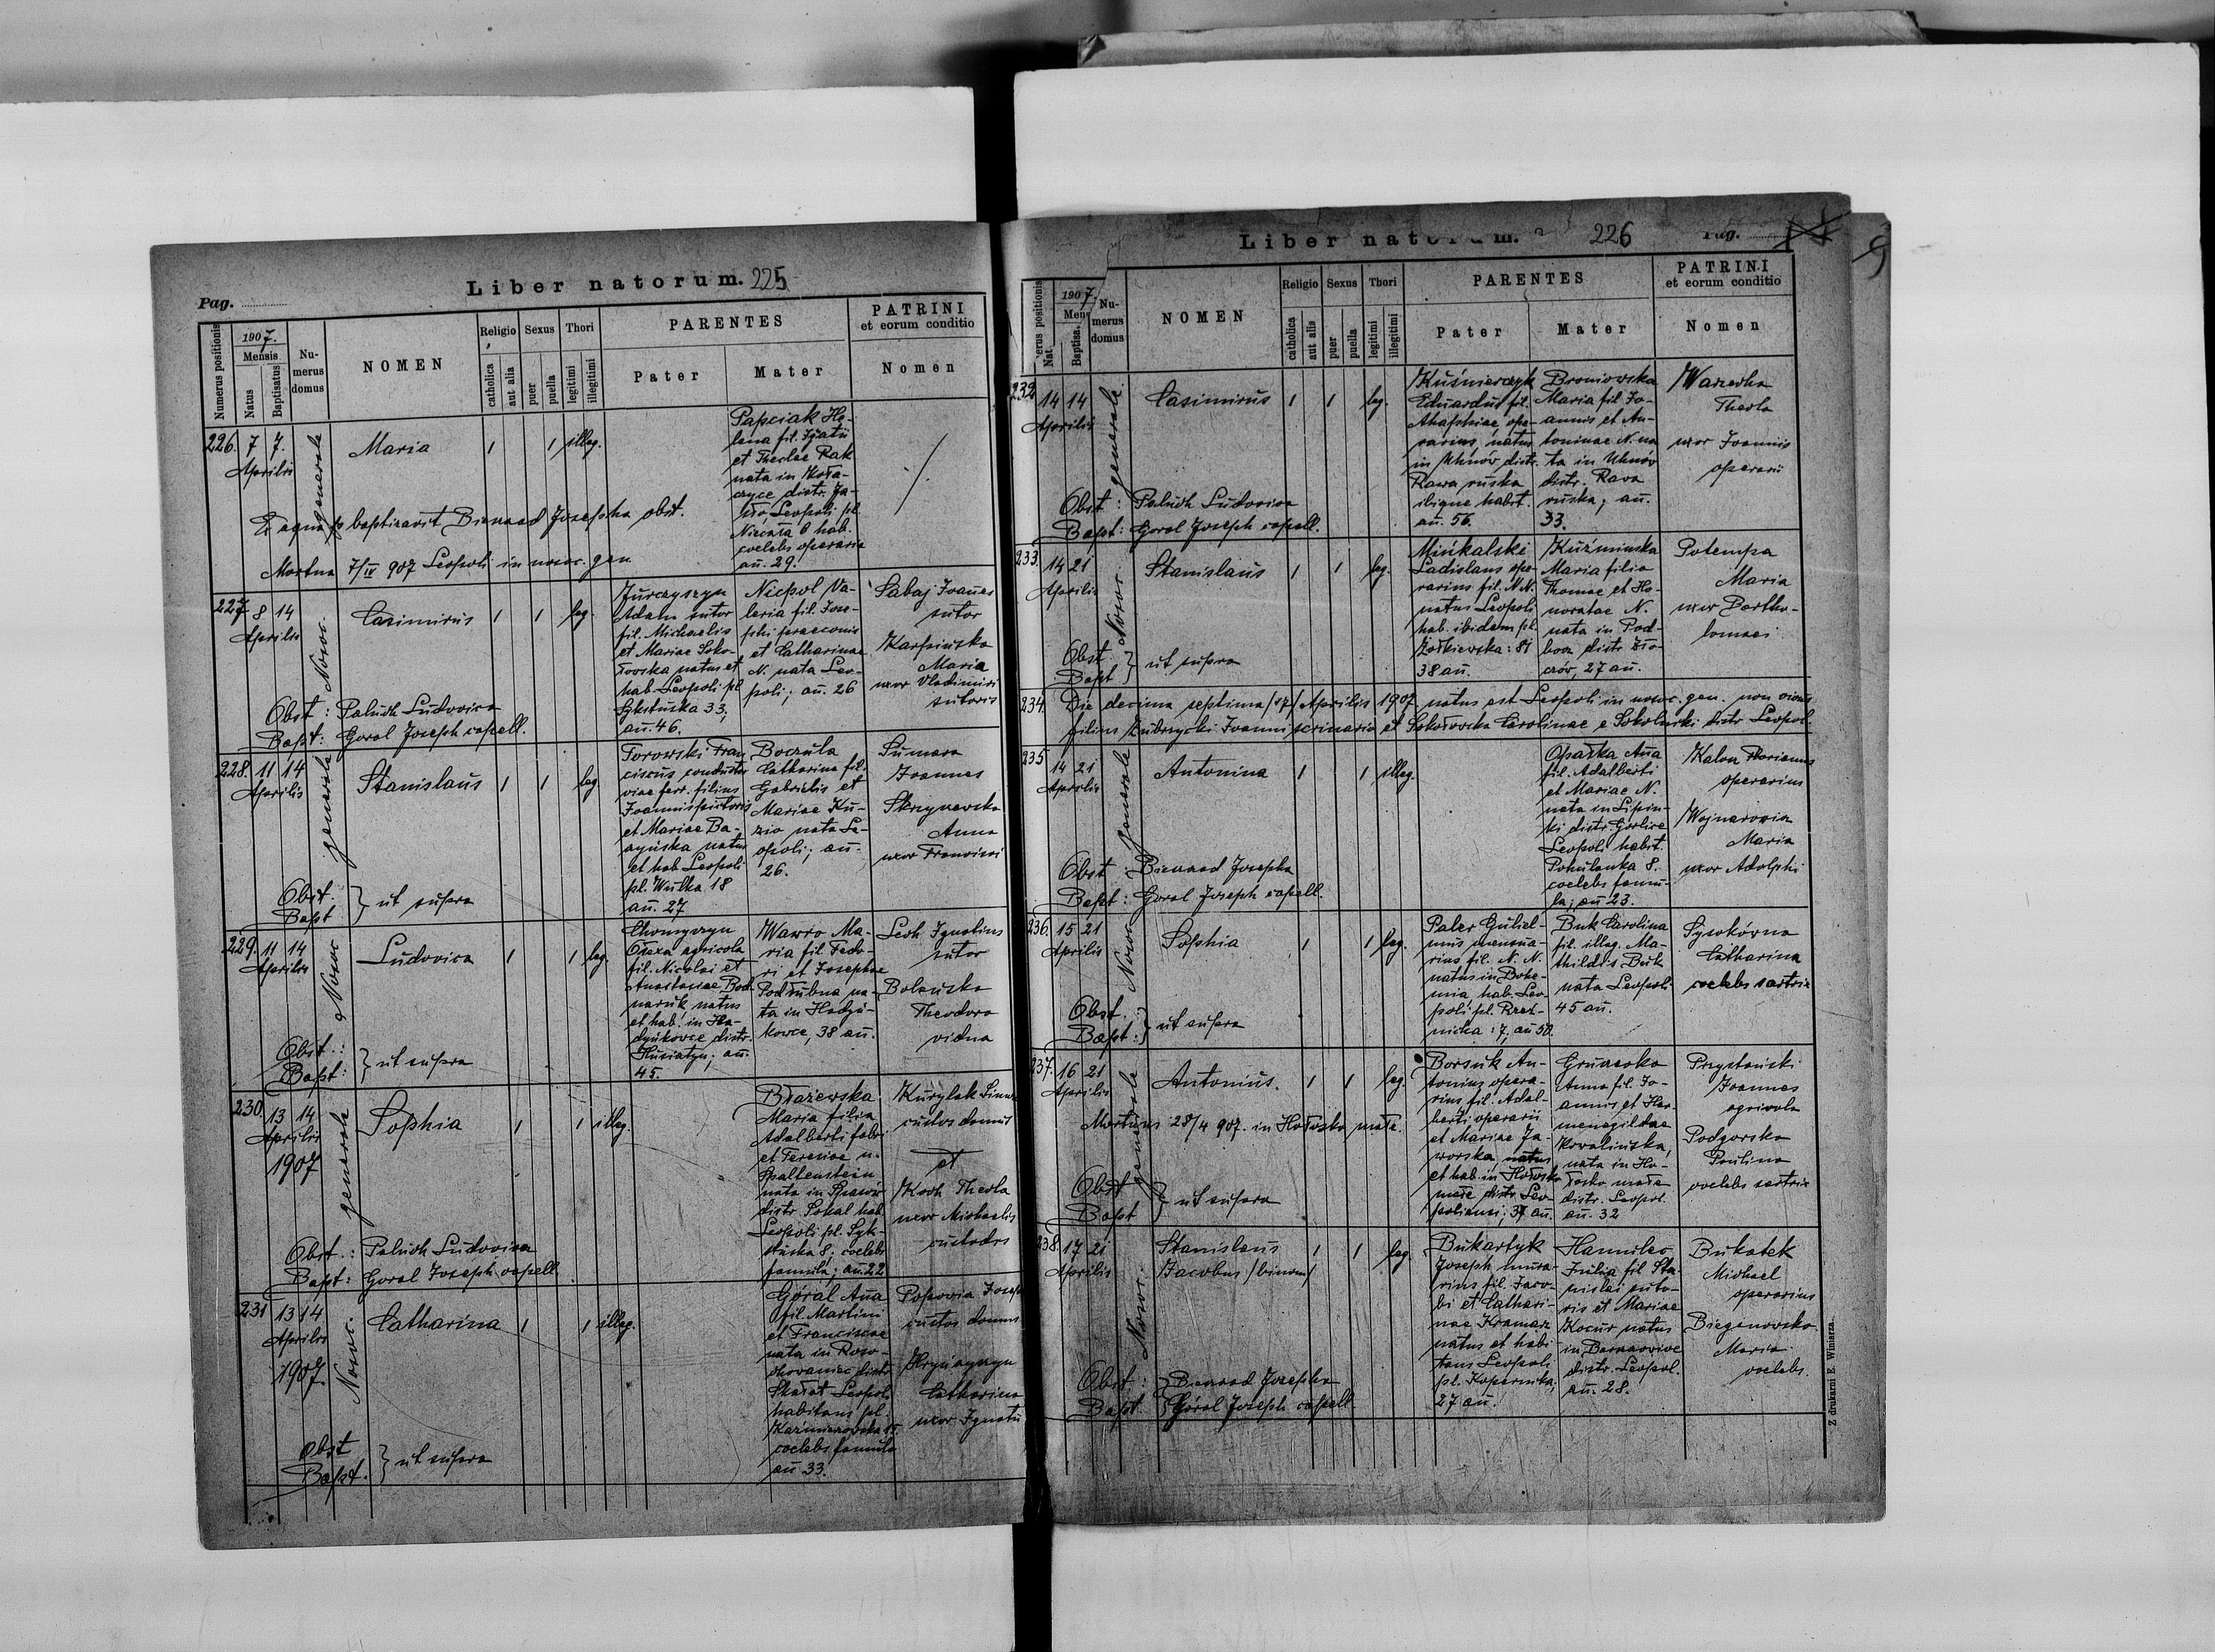 Liber natorum. 225
Pag.
Numerus positionis
1907.
Mensis
Natus
Baptisatus
Numerus domus
NOMEN
Religio
catholica
aut alia
Sexus
puer
puella
Thori
legitimi
illegitimi
PARENTES
Pater
Mater
PATRINI
et eorum conditio
Nomen
226. 7 7.
Aprilis
generale
Maria
1 1 illeg.
Papciak He-
lena fil. Ignatii
et Theclae Rak
nata in Koła-
czyce distr. Ja-
sło, Leopoli pl.
Niecała 6 hab.
coelebs operaria
añ. 29.
Ex aqua baptizavit Josepha obst.
Mortua 7/IV 907 Leopoli in nosoc. gen.
227 8 14
Aprilis
Nosoc.
Casimirus
1 1 leg.
Jurczyszyn
Adam sutor
fil. Michaelis
et Mariae Soko-
łowska natus et
hab. Leopoli pl
Sykstuska 33;
añ. 46.
Niepol Va-
leria fil. Jose-
phi praeconis
et Catharinae
N. nata Leo-
poli; añ. 26
Sabaj Joañes
sutor
Karpińska
Maria
uxor Vladimiri
sutoris
Obst: Paluch Ludovica
Bapt: Goral Joseph capell.
228. 11 14
Aprilis
generale
Stanislaus
1 1 leg
Torowski Fran
ciscus conductor
viae ferr. filius
Joannis pictoris
et Mariae Ba-
czyńska natus
et hab. Leopoli
pl. Wulka 18
añ. 27
Boczula
Catharina fil.
Gabrielis et
Mariae Ku-
zio nata Le-
opoli; añ.
26.
Sumara
Joannes
Skrzynewska
Anna
uxor Francisci
Obst.
Bapt } ut supra
229. 11 14
Aprilis
Nosoc
Ludovica
1 1 leg.
Chomyszyn
Olexa agricola
fil. Nicolai et
Anastasiae Bod
naruk, natus
et hab. in Ha-
dyńkowce distr.
Husiatyn; añ.
45.
Wawro Ma-
ria fil. Fedo-
ri et Josephae
Podłubna na-
ta in Hadyń-
kowce, 38 añ.
Lech Ignatius
sutor
Bolańska
Theodora
vidua
Obst.:
Bapt: } ut supra
230. 13 14
Aprilis
1907
generale
Sophia
1 1 illeg.
Błażewska
Maria filia
Adalberti fabri
et Teresiae n.
Spaltenstein
nata in Spasów
distr. Sokal hab
Leopoli pl. Syk-
stuska 8; coelebs
famula; añ. 22
Kurylak Simon
custos domus
et
Koch Thecla
uxor Michaelis
custodis
Obst.: Paluch Ludovica
Bapt: Goral Joseph capell
231 13 14
Aprilis
1907.
Nosoc.
Catharina
1 1 illeg.
Góral Aña
fil. Martini
et Franciscae
nata in Roso-
chowaniec distr
Skałat Leopoli
habitans pl.
Kazimierowska 15
coelebs famula
añ 33.
Popowia Joseph
custos domus
Catharina
uxor Ignatii
Obst
Bapt. } ut supra
Liber natorum. 226
Pag.
Numerus positionis
1907.
Mens
Nat
Baptisa.
Numerus domus
NOMEN
Religio
catholica
aut alia
Sexus
puer
puella
Thori
legitimi
illegitimi
PARENTES
Pater
Mater
PATRINI
et eorum conditio
Nomen
232 14 14
Aprilis
generale
Casimirus
1 1 leg.
Kuśnierczyk
Eduardus fil.
Ahaphiae, ope-
rarius, natus
in Uhnów distr.
Rawa ruska
ibique habit.
añ. 56.
Broniowska
Maria fil. Jo-
annis et An-
toninae N. na
ta in Uhnów
distr. Rava
ruska; añ.
33.
Warzecha
Thecla
uxor Joannis
operarii
Obst: Paluch Ludovica
Bapt: Goral Joseph capell.
233. 14 21
Aprilis
Nosoc.
Stanislaus
1 1 leg.
Mińkalski
Ladislaus ope-
rarius fil. N. N.
natus Leopoli
hab. ibidem pl.
Żołkiewska: 81
38 añ.
Kuźmińska
Maria filia
Thomae et Ho-
noratae N.
nata in Pod-
horce distr Zło-
czów, 27 añ.
Potempa
Maria
uxor Bartho-
lomaei
Obst
Bapt } ut supra
234. Die decima septima /17/ Aprilis 1907. natus est Leopoli in nosoc. gen. non vivus
filius Zubrzycki Joanni scrinario et Sokołowska Carolinae e Sokolniki distr Leopol
235 14 21
Aprilis
generale
Antonina
1 1 illeg.
Opałka Aña
fil. Adalberti
et Mariae N.
nata in Lipin-
ki distr. Gorlice
Leopoli habit.
Pohulanka 8.
coelebs famu-
la; añ 23.
Kalon Florianus
operarius
Wojnarowia
Maria
uxor Adolphi
Obst Josepha
Bapt: Goral Joseph capell.
236. 15 21
Aprilis
Nosoc.
Sophia
1 1 leg.
Paler Guliel-
mus mensua-
rius fil. N. N.
natus in Bohe-
mia, hab. Leo-
poli, pl. Rzeź-
nicka: 7; añ 50.
Buk Carolina
fil. illeg. Ma-
thildis Buk
nata Leopoli
45 añ.
Sysakówna
Catharina
coelebs sartrix
Obst.
Bapt: } ut supra
237. 16 21
Aprilis
generale
Antonius.
1 1 leg.
Borsuk An-
tonius opera-
rius fil. Adal-
berti operarii
et Mariae Ja-
worska, natus
et hab. in Hołosko
małe distr. Leo-
poliensi; 37 añ.
Gruszecka
Anna fil. Jo-
annis et Her-
menegildae
Kowalińska,
nata in Ho-
łosko małe
distr. Leopol.
añ. 32
Przystański
Joannes
agricola
Podgorska
Paulina
coelebs sartrix
Mortuus 28/4 907. in Hołosko małe.
Obst
Bapt } ut supra
238. 17 21
Aprilis
Nosoc.
Stanislaus
Jacobus /binom/
1 1 leg.
Bukartyk
Joseph mura-
rius fil. Jaco-
bi et Cathari-
nae Kramarz
natus et habi
tans Leopoli
pl. Kopernika;
27 añ.
Julia fil Sta-
nislai suto-
ris et Mariae
Kocur natus
in Barszczowice
distr. Leopol.
añ. 28.
Bukatek
Michael
operarius
Bieganowska
Maria
coelebs.
Obst: Josepha
Bapt. Góral Joseph capell
Z drukarni E. Winiarza.